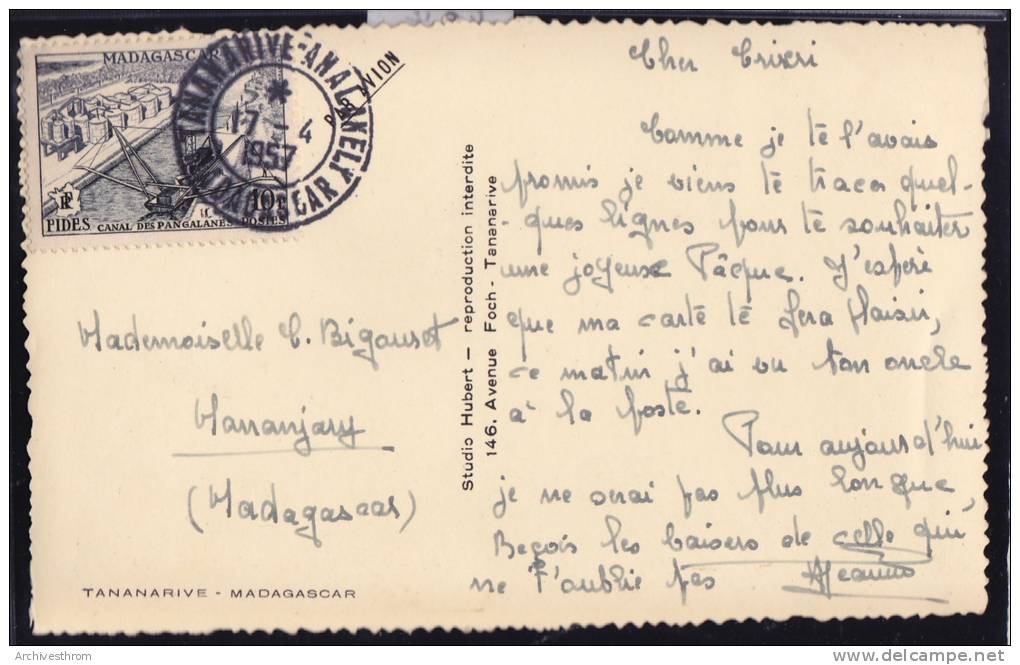 MADAGASCAR
RF
10F
PIDES CANAL DES PANGALANES POSTES
TANANARIVE-ANALAKELY
*
17 - 4
1957
MADAGASCAR
PAR AVION
Cher
Comme je te l'avais
promis je viens te tracer quel-
-ques lignes pour te souhaiter
une joyeuse Pâque. J'espère
que ma carte te fera plaisir,
ce matin j'ai vu ton oncle
à la poste.
Pour aujourd'hui
je ne serai pas plus longue,
Reçois les baisers de celle qui
ne t'oublie pas
Mademoiselle C. Bigauset
Mananjary
(Madagascar)
Studio Hubert — reproduction interdite
146, Avenue Foch - Tananarive
TANANARIVE - MADAGASCAR
Archivesthrom
www.delcampe.net